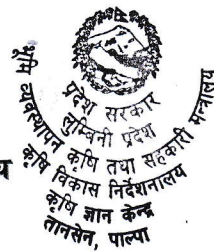 प्रदेश सरकार
लुम्बिनी प्रदेश
भूमि व्यवस्थापन कृषि तथा सहकारी मन्त्रालय
कृषि विकास निर्देशनालय
कृषि ज्ञान केन्द्र
तानसेन, पाल्पा
य